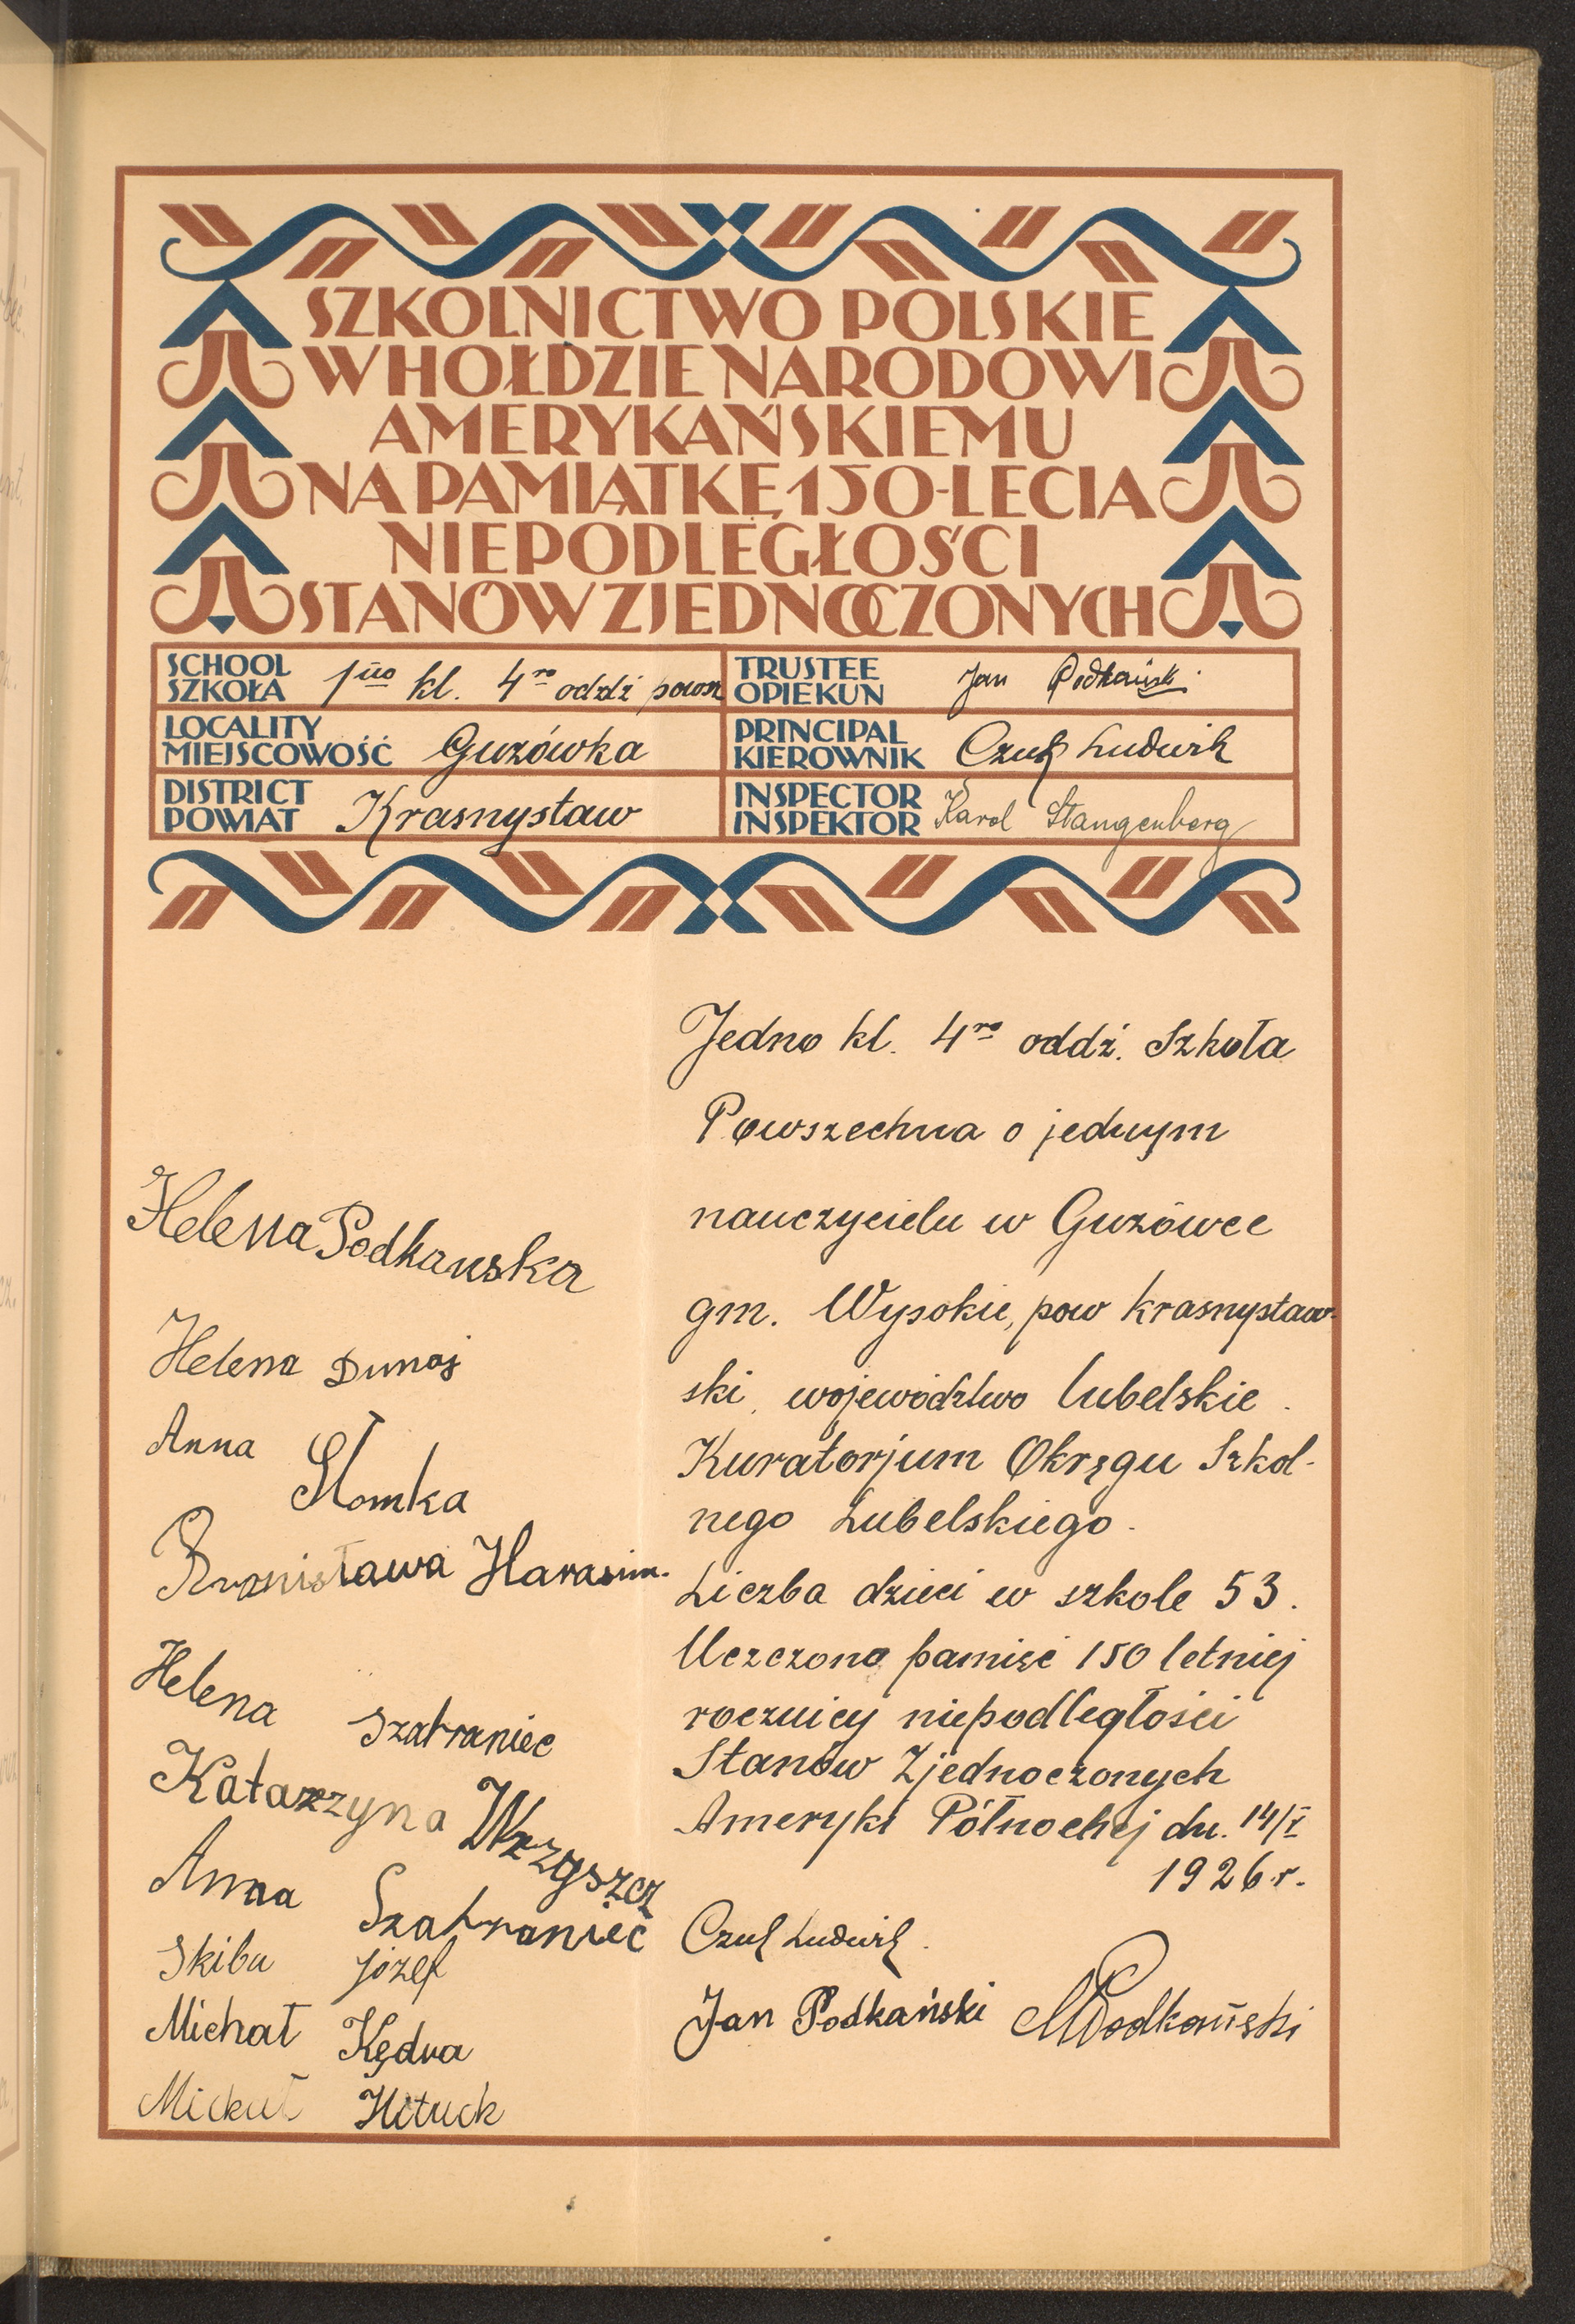 SZKOLNICTWO POLSKIE
W HOŁDZIE NARODOWI
AMERYKAŃSKIEMU
NA PAMIĄTKĘ 150-LECIA
NIEPODLEGŁOŚCI
STANÓW ZJEDNOCZONYCH
SCHOOL
SZKOŁA 1no kl. 4ro oddź powsz
TRUSTEE
OPIEKUN Jan Podkański
LOCALITY
MIEJSCOWOŚĆ Guzówka
PRINCIPAL
KIEROWNIK Czuk Ludwik
DISTRICT
POWIAT Krasnystaw
INSPECTOR
INSPEKTOR Karol Stangenberg
Jedno kl. 4ro oddź. Szkoła
Powszechna o jednym
nauczycielu w Guzówce
gm. Wysokie, pow krasnystaw-
ski, województwo lubelskie.
Kuratorjum Okręgu Szkol-
nego Lubelskiego.
Liczba dzieci w szkole 53.
Uczczono pamięć 150 letniej
rocznicy niepodległości
Stanów Zjednoczonych
Ameryki Północnej dn. 14/V
1926 r.
Czuk Ludwik.
Jan Podkański Podkański
Helena Podkanska
Helena Dunaj
Anna Słomka
Bronisława Harasim.
Helena Szafraniec
Katarzyna Wrzyszcz
Anna Szafranieć
Skiba Józef
Michał Kędra
Michał